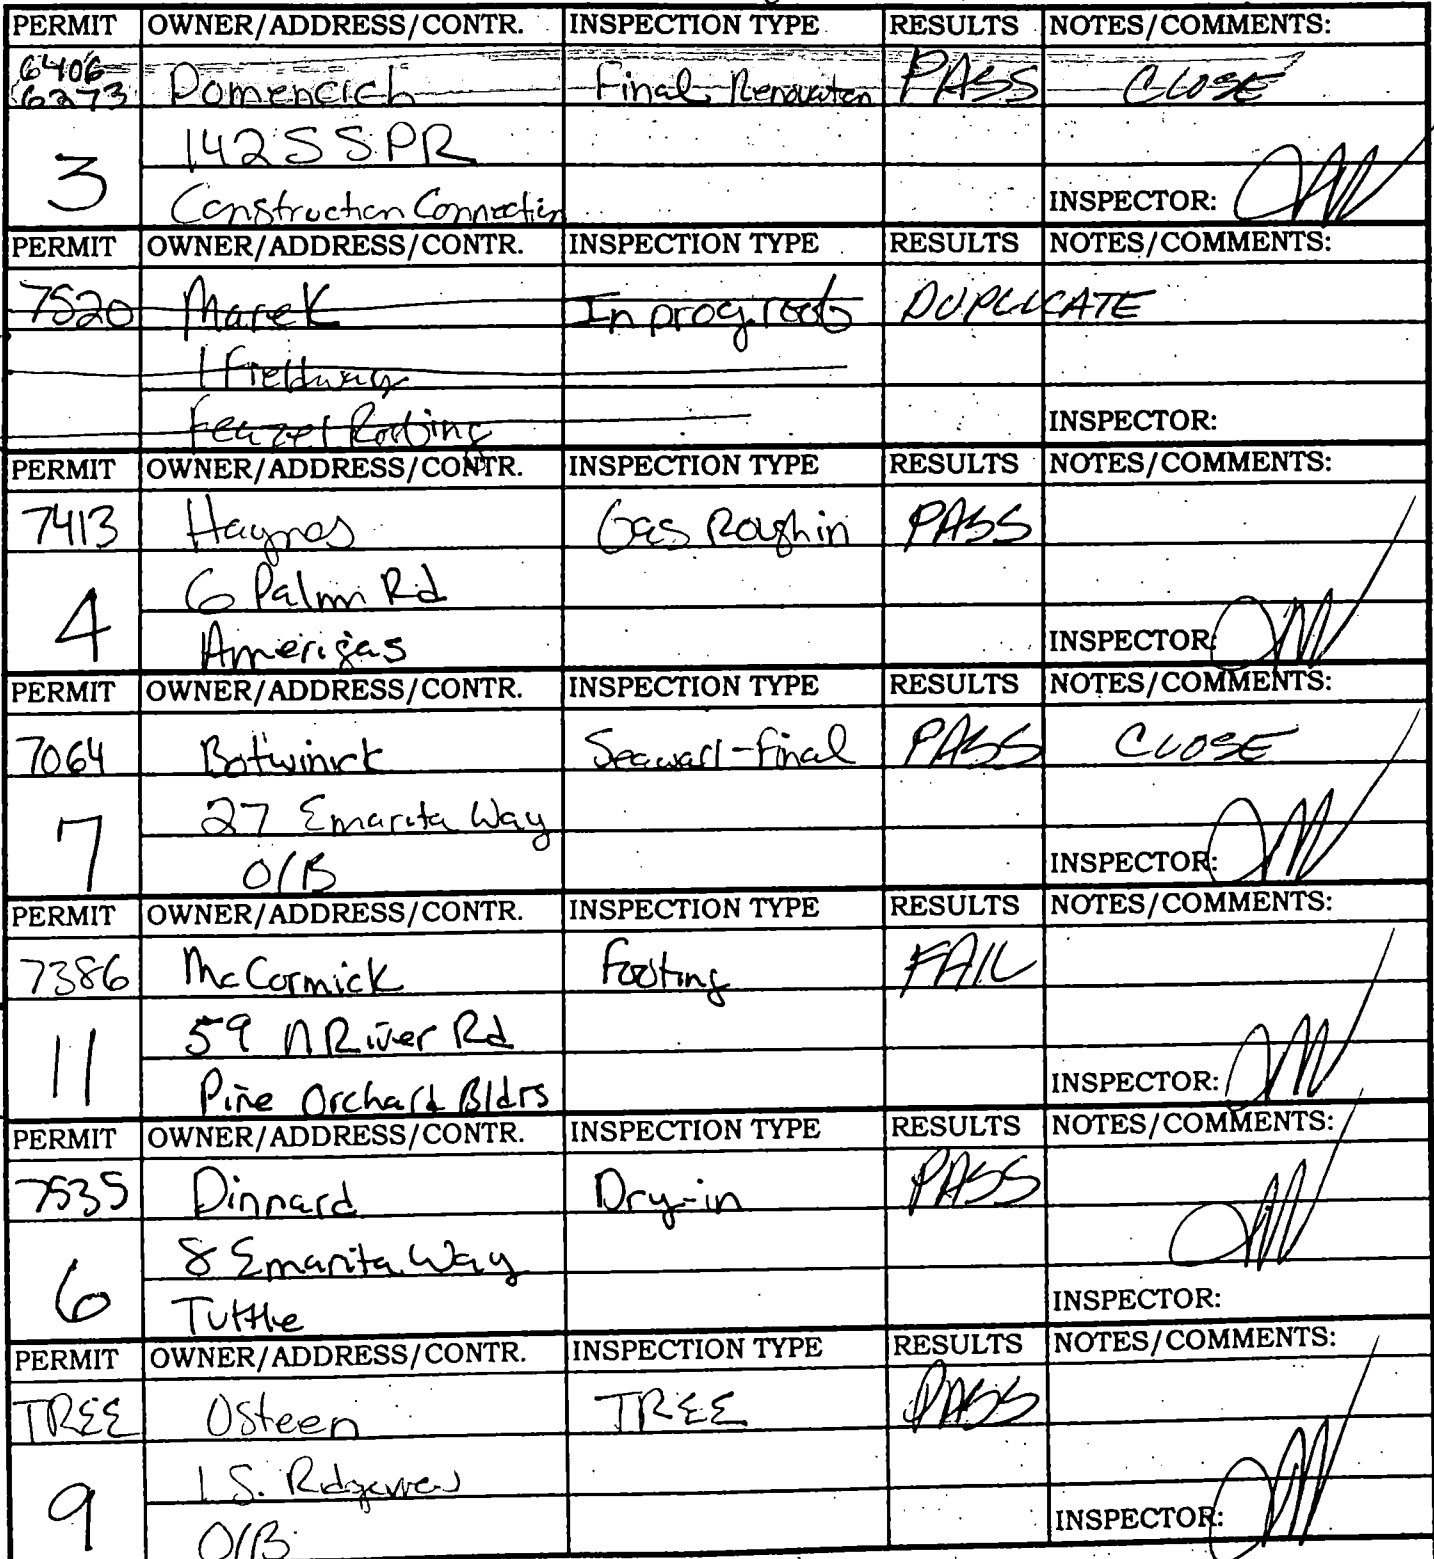 PERMIT OWNER/ADDRESS/CONTR. INSPECTION TYPE RESULTS NOTES/COMMENTS:
6406
6273 Domencich Final Renovation PASS CLOSE
142 S SPR
3
Construction Connection INSPECTOR:
PERMIT OWNER/ADDRESS/CONTR. INSPECTION TYPE RESULTS NOTES/COMMENTS:
7520 Marek In prog. roof DUPLICATE
1 Fieldway
Roofing INSPECTOR:
PERMIT OWNER/ADDRESS/CONTR. INSPECTION TYPE RESULTS NOTES/COMMENTS:
7413 Haynes Gas Rough in PASS
6 Palm Rd
4
Amerigas INSPECTOR:
PERMIT OWNER/ADDRESS/CONTR. INSPECTION TYPE RESULTS NOTES/COMMENTS:
7064 Botwinick Seawall-Final PASS CLOSE
27 Emarita Way
7
O/B INSPECTOR:
PERMIT OWNER/ADDRESS/CONTR. INSPECTION TYPE RESULTS NOTES/COMMENTS:
7386 McCormick Footing FAIL
59 N River Rd
11
Pine Orchard Bldrs INSPECTOR:
PERMIT OWNER/ADDRESS/CONTR. INSPECTION TYPE RESULTS NOTES/COMMENTS:
7535 Dinnard Dry-in PASS
8 Emarita Way
6
Tuttle INSPECTOR:
PERMIT OWNER/ADDRESS/CONTR. INSPECTION TYPE RESULTS NOTES/COMMENTS:
TREE Osteen TREE PASS
1 S. Ridgeview
9
O/B INSPECTOR: